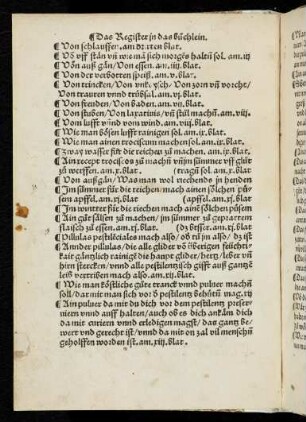 ¶ Das Register in das büchlein.
¶ Von schlauffen. am ersten blat.
¶ Võ vff stãn vñ wie mã sich morgēs haltñ sol. am. iij
¶ Võn auß gãn/Von essen. am. iiij. blat.
¶ Von der verbotten speiß. am. v. blat.
¶ Von trincken/Von vnk eüsch/Von zorn vñ vorcht/
Von trauren vnnd trübsal. am. vj. blat.
¶ Von freuden/Von baden. am. vij. blat.
¶ Von stuben/Von laxatiuis/vñ still machñ. am. viij.
¶ Von lufft vnnd vom wind. am. viij. blat.
¶ Wie man bösen lufft rainigen sol. am. ix. blat.
¶ Wie man ainen trociscum machen sol. am. ix. blat.
¶ Zway wasser für die reichen zů machen. am. ix. blat.
¶ Ain recept trociscos zů machñ vñ jm summer vff glüt
zů werffen. am. x. blat. (tragñ sol. am. x. blat.
¶ Von auß gãn/Was man wol riechends in henden
¶ Im summer für die reichen/mach ainen sölichen pům
sen apffel. am. xj. blat (apffel. am. xj. blat.
¶ Im wintter für die reichen mach ainē sölichen pysem
¶ Ain gůt salsen zů machen/im summer zů gepraatem
flaisch zů essen. am. xj. blat. (dz besser. am. xij. blat
¶ Pillulas pestilēciales mach also/ob eü jn also/dz ist
¶ Annder pillulas/die alle glider võ überigen feüchti
kait gäntzlich rainigē die haupt glider/hertz/leber vñ
hirn stercken/vnnd alle pestilentzisch gifft auß gantzē
leib vertriben mach also. am. xij. blat.
¶ Wie man köstliche gůte tranck vnnd puluer machñ
soll/dar mit man sich vor d pestilentz behůtñ mag. xij
¶ Ain puluer da mit du dich vor dem pestilentz preser
niern vnnd auff halten/auch ob es dich ankäm dich
da mit curiern vnnd erledigen magst/das gantz be
wert vnd gerecht ist/vnnd da mit on zal vil menschñ
geholffen worden ist. am. xiij. blat.